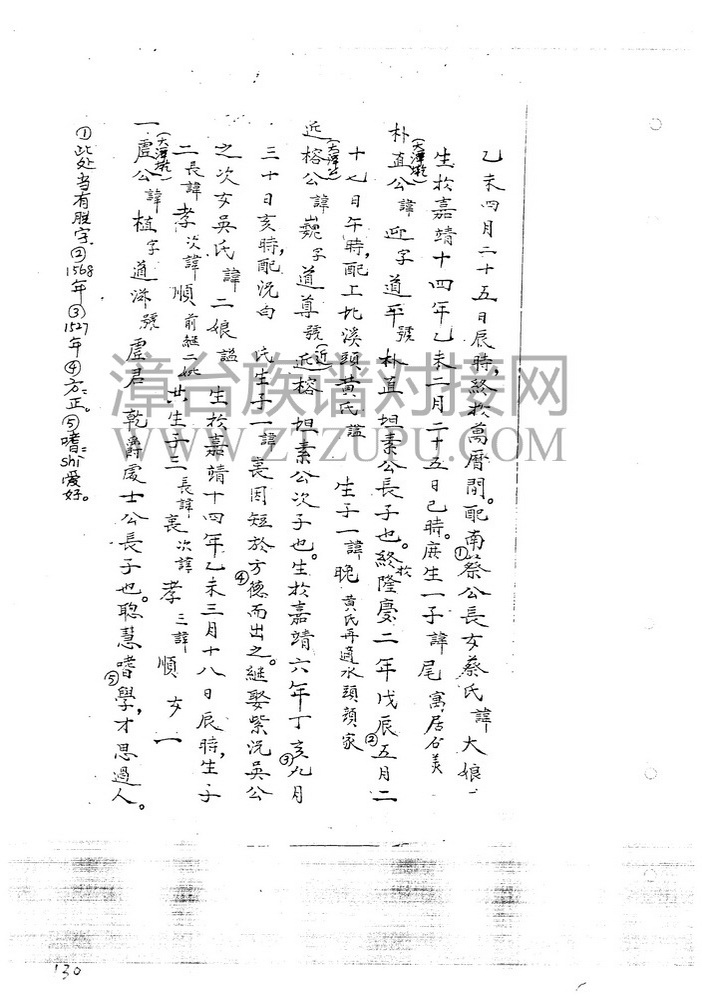 乙未四月二十五日辰時,終於萬曆間。配南①蔡公長女蔡氏諱大娘
生於嘉靖十四年乙未二月二十五日巳時。庶生一子諱尾寓居
朴直公諱迎字道平號朴直坦素公長子也。終於隆慶二年戊辰②五月二
十七日午時,配上坑溪頭黃氏諡 生子一諱晚黃氏再適水頭顏家
近榕公諱巍字道尊號(近)近榕坦素公次子也。生於嘉靖六年丁亥③九月
三十日亥時,配沇向 氏生子一諱裏因短於方④德而出之。繼娶紫沇吳公
之次女吳氏諱二娘諡 生於嘉靖十四年乙未三月十八日辰時,生子
二長諱孝次諱順前繼二妣共生子三長諱裏次諱孝三諱順女一
一虛公諱植字道 號虛君乾爵處士公長子也。聰慧嗜⑤學,才思過人。
①此处当有脱字②1568年③1527年④方:正。⑤嗜:shì爱好。
漳台族谱对接网
WWW.ZTZUPU.COM
130